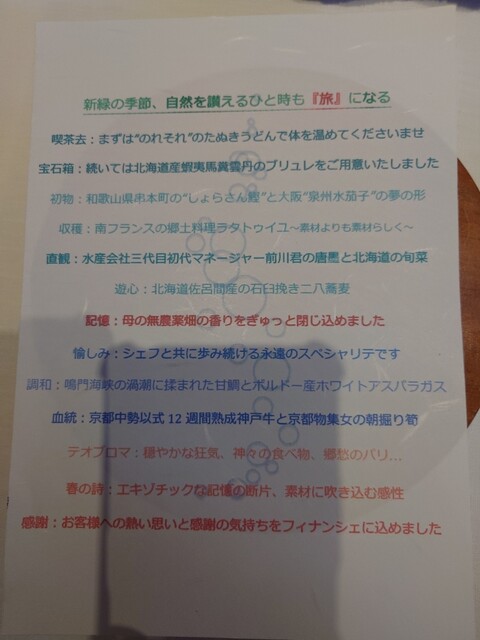 新緑の季節、自然を讃えるひと時も『旅』になる
喫茶去：まずは“のれそれ”のたぬきうどんで体を温めてくださいませ
宝石箱：続いては北海道産蝦夷馬糞雲丹のブリュレをご用意いたしました
初物：和歌山県串本町の“しょらさん鰹”と大阪“泉州水茄子”の夢の形
収穫：南フランスの郷土料理ラタトゥイユ～素材よりも素材らしく～
直観：水産会社三代目初代マネージャー前川君の唐墨と北海道の旬菜
遊心：北海道佐呂間産の石臼挽き二八蕎麦
記憶：母の無農薬畑の香りをぎゅっと閉じ込めました
愉しみ：シェフと共に歩み続ける永遠のスペシャリテです
調和：鳴門海峡の渦潮に揉まれた甘鯛とボルドー産ホワイトアスパラガス
血統：京都中勢以式 12 週間熟成神戸牛と京都物集女の朝掘り筍
テオブロマ：穏やかな狂気、神々の食べ物、郷愁のパリ…
春の詩：エキゾチックな記憶の断片、素材に吹き込む感性
感謝：お客様への熱い思いと感謝の気持ちをフィナンシェに込めました